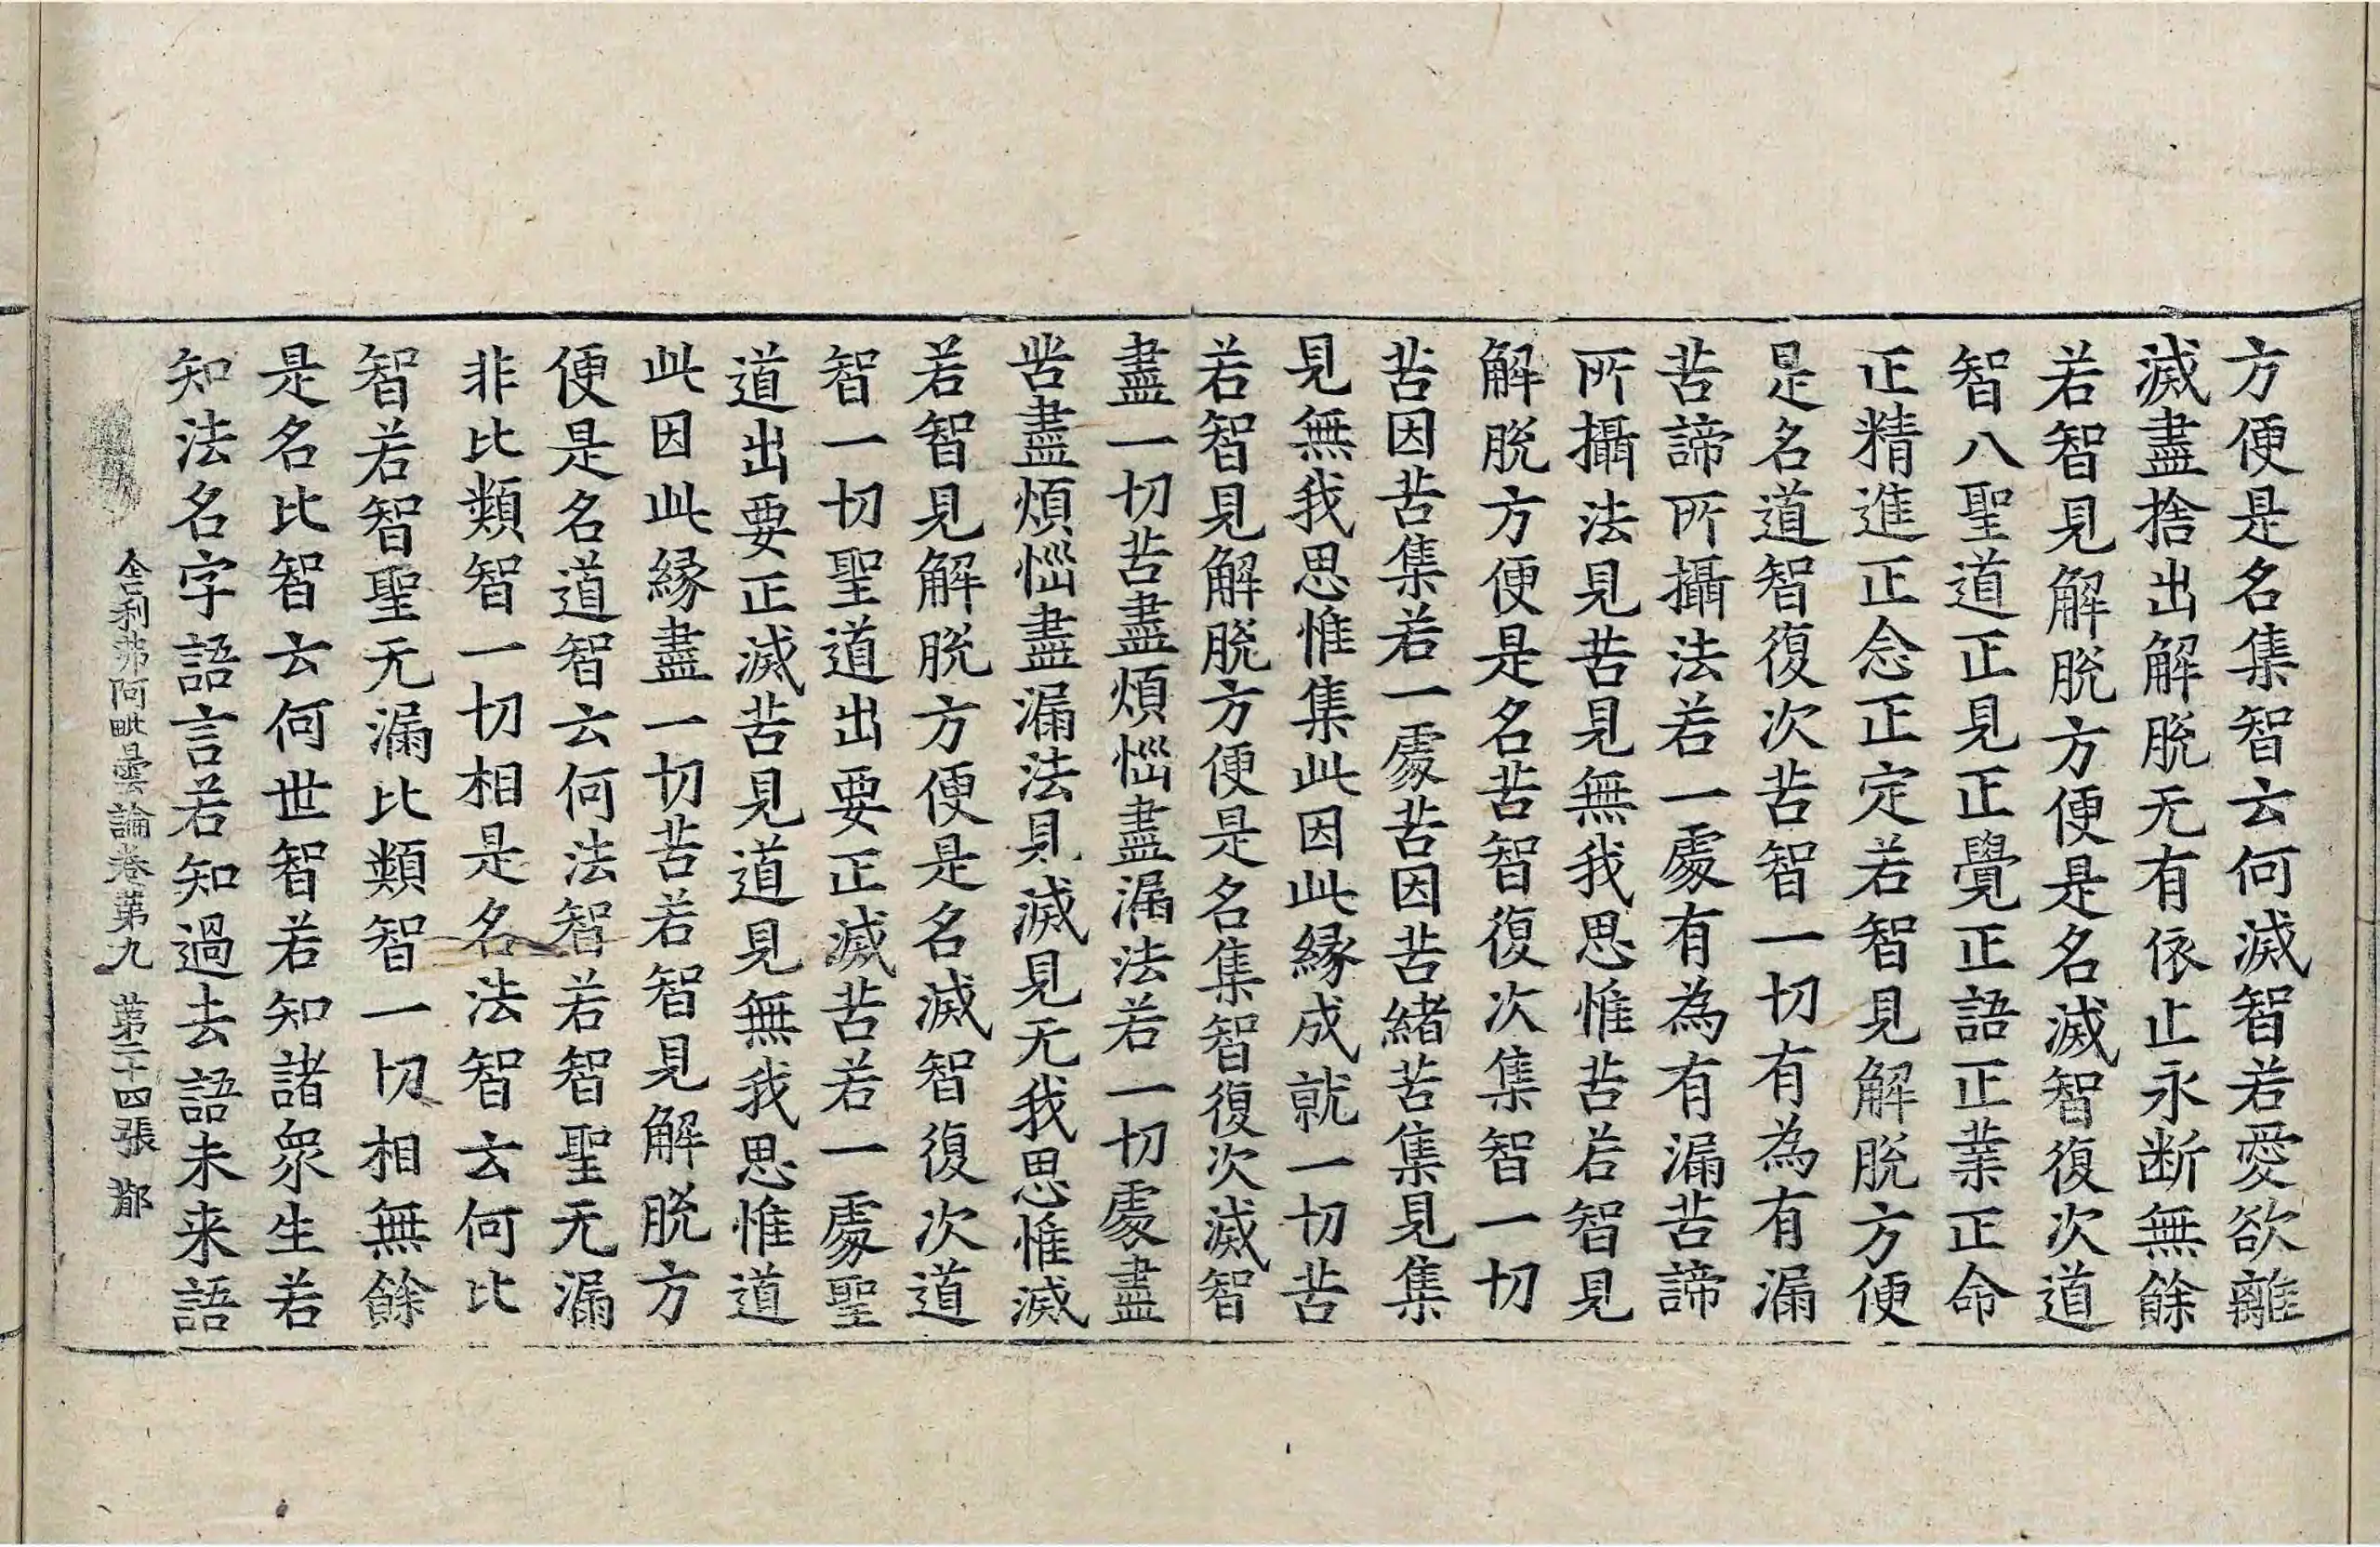 方便是名集智云何滅智若愛欲離
滅盡捨出解脫无有依止永断無餘
若智見解脫方便是名滅智復次道
智八聖道正見正覺正語正業正命
正精進正念正定若智見解脫方便
是名道智復次苦智一切有為有漏
苦諦所攝法若一處有為有漏苦諦
所攝法見苦見無我思惟苦若智見
解脫方便是名苦智復次集智一切
苦因苦集若一處苦因苦緒苦集見集
見無我思惟集此因此緣成就一切苦
若智見解脫方便是名集智復次滅智
盡一切苦盡煩惱盡漏法若一切處盡
苦盡煩惱盡漏法見滅見无我思惟滅
若智見解脫方便是名滅智復次道
智一切聖道出要正滅苦若一處聖
道出要正滅苦見道見無我思惟道
此因此緣盡一切苦若智見解脫方
便是名道智云何法智若智聖无漏
非比類智一切相是名法智云何比
智若智聖无漏比類智一切相無餘
是名比智云何世智若知諸眾生若
知法名字語言若知過去語未来語
舍利弗阿毗曇論卷第九 第二十四張